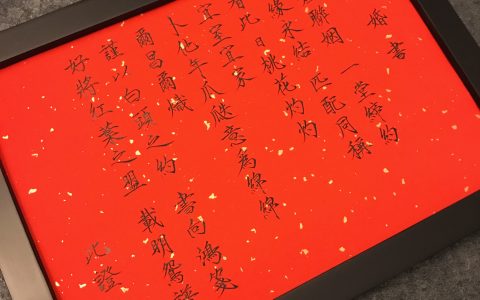 婚書
聯姻 一堂締約
緣永結 匹配同稱
此日桃花灼灼
宜室宜家
卜他年瓜瓞意為綿綿
爾昌爾熾
謹以白頭之約 書向鴻箋
好將紅葉之盟 載明鴛譜
此證